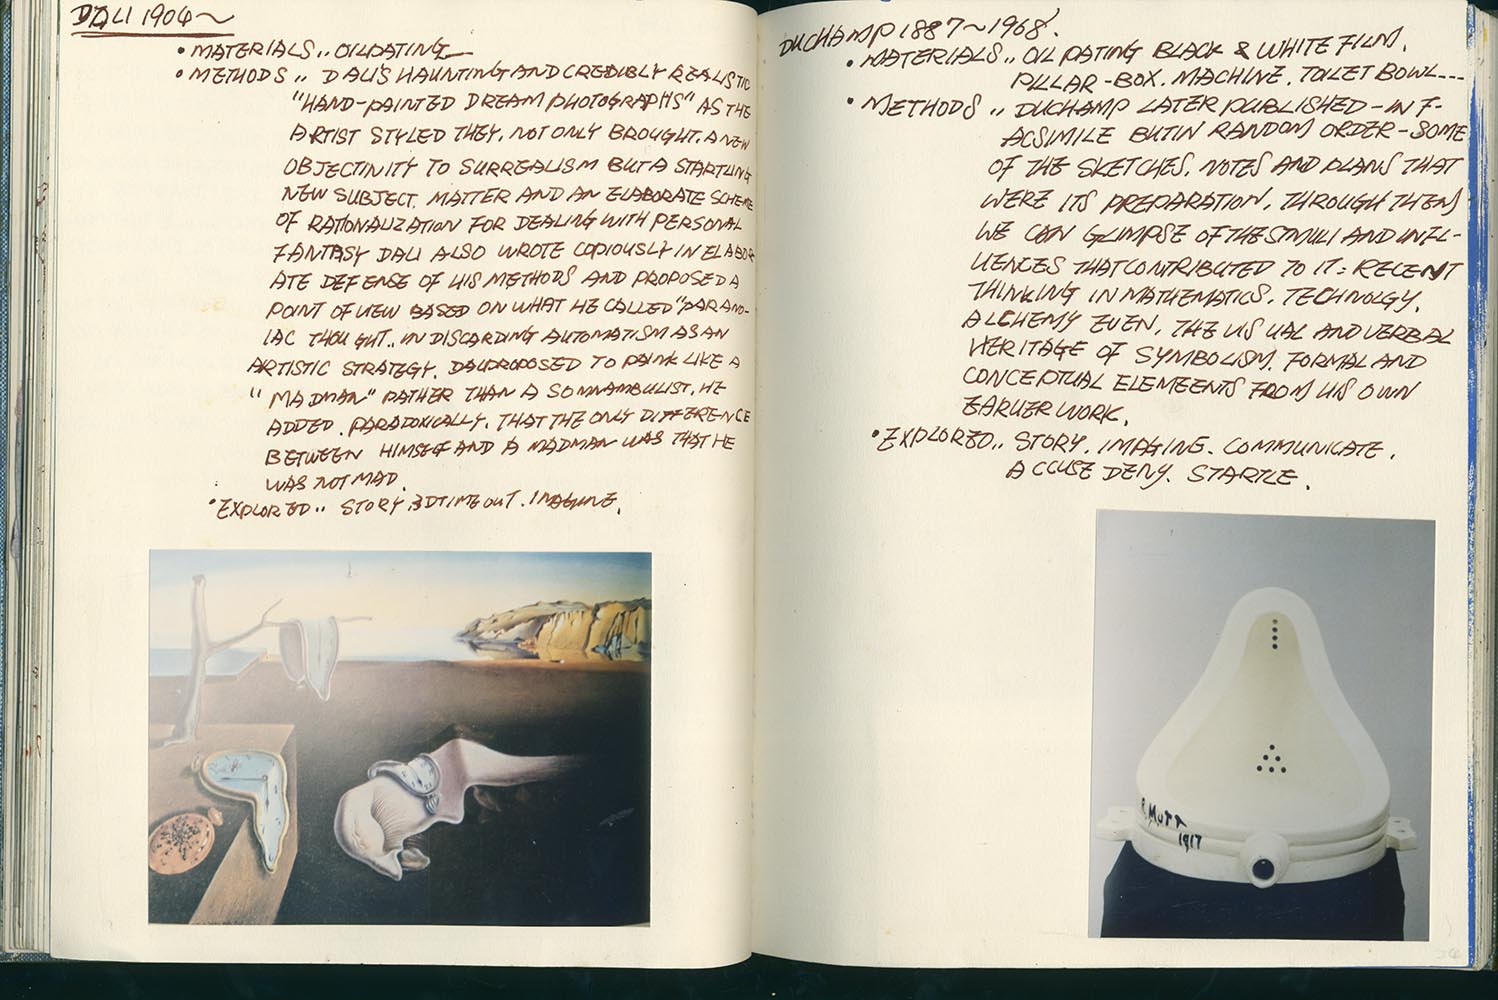 DALI 1904~
• MATERIALS.. OILPATING
• METHODS.. DALI'S HAUNTING AND CREDIBLY REALISTIC
"HAND-PAINTED DREAM PHOTOGRAPHS" AS THE
ARTIST STYLED THEY, NOT ONLY BROUGHT. A NEW
OBJECTINITY TO SURREALISM BUT A STARTLING
NEW SUBJECT. MATTER AND AN ELABORATE SCHEME
OF RATIONALIZATION FOR DEALING WITH PERSONAL
FANTASY DALI ALSO WROTE COPIOUSLY IN ELABOR
ATE DEFENSE OF HIS METHODS AND PROPOSED A
POINT OF VIEW BASED ON WHAT HE CALLED "PARANO-
IAC THOUGHT.. IN DISCARDING AUTOMATISM AS AN
ARTISTIC STRATEGY. DALI PROPOSED TO PAINK LIKE A
"MADMAN" RATHER THAN A SOMNAMBULIST. HE
ADDED. PARADOXICALLY. THAT THE ONLY DIFFERENCE
BETWEEN HIMSELF AND A MADMAN WAS THAT HE
WAS NOT MAD.
• EXPLORED.. STORY. 3DTIMEOUT. IMAGINE.
DUCHAMP 1887~1968.
• MATERIALS.. OIL PATING BLACK & WHITE FILM.
PILLAR-BOX. MACHINE. TOILET BOWL---
• METHODS.. DUCHAMP LATER PUBLISHED-IN F-
ACSIMILE BUTIN RANDOM ORDER-SOME
OF THE SKETCHES. NOTES AND PLANS THAT
WERE ITS PREPARATION. THROUGH THEM
WE CAN GLIMPSE OF THE STIMULI AND INFL-
UENCES THAT CONTRIBUTED TO IT: RECENT
THINKING IN MATHEMATICS. TECHNOLGY.
ALCHEMY EVEN. THE VISUAL AND VERBAL
HERITAGE OF SYMBOLISM. FORMAL AND
CONCEPTUAL ELEMEENTS FROM HIS OWN
EARLIER WORK.
• EXPLORED.. STORY. IMAGING. COMMUNICATE.
ACCUSE DENY. STARTLE.
R. MUTT
1917